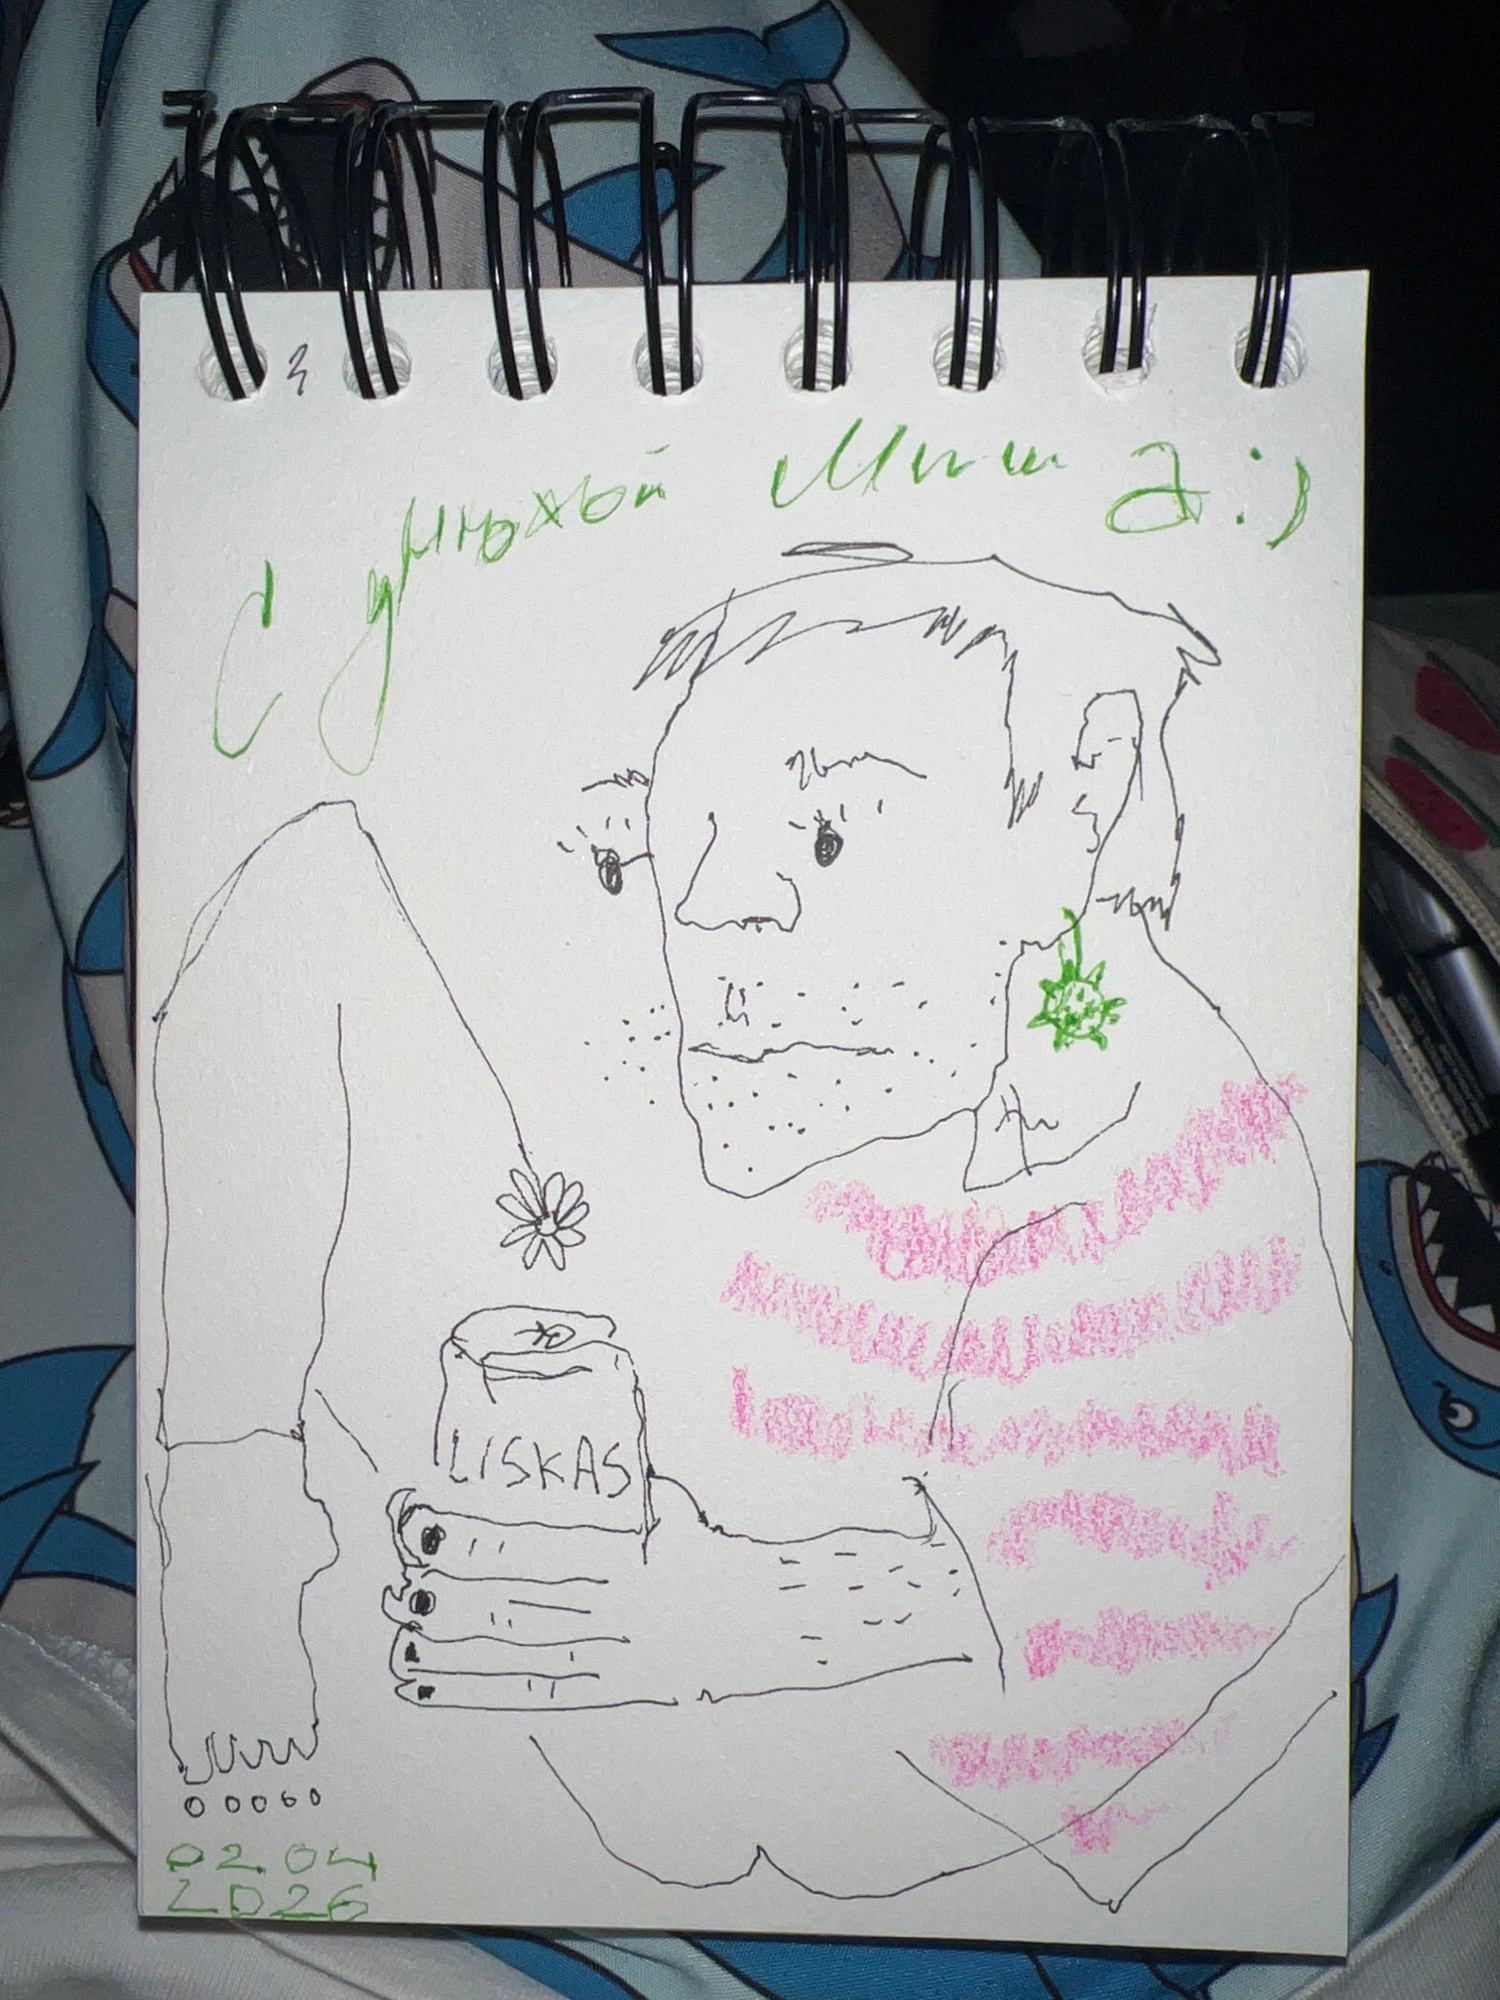 С днюхой Миша :)
LISKAS
02 04
2026